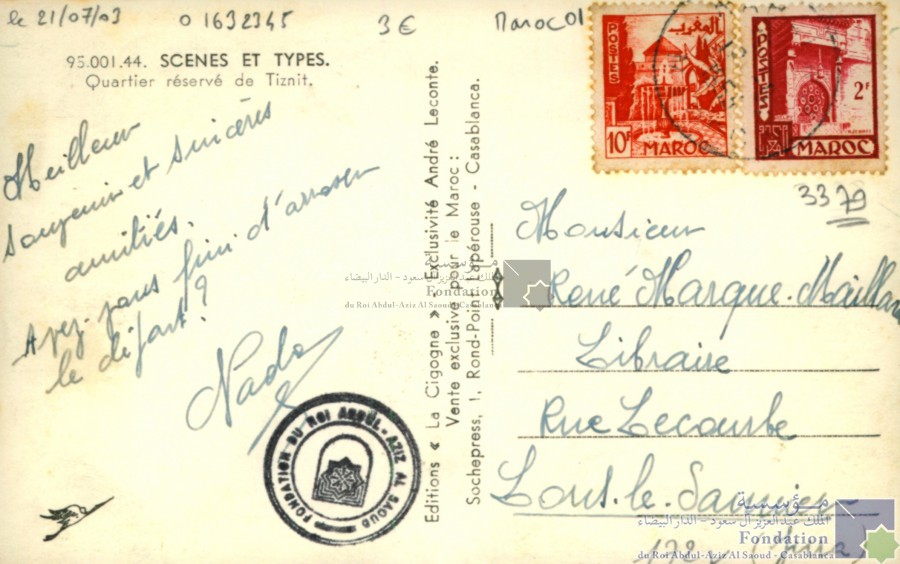 le 21/07/03
01632345
3€
Maroc 01
95.001.44. SCENES ET TYPES.
Quartier réservé de Tiznit.
Meilleur
souvenir et sincères
amitiés.
Avez-vous fini d'arroser
le départ ?
Nado
FONDATION DU ROI ABDUL-AZIZ AL SAOUD
Editions « La Cigogne » Exclusivité André Leconte.
Vente exclusive pour le Maroc :
Sochepress, 1, Rond-Point Lapérouse - Casablanca.
POSTES
المغرب
10F MAROC
POSTES
2F
MAROC
3379
Monsieur
René Marque-Maillard
Libraire
Rue Lecourbe
Lons-le-Saunier
(Jura)
مؤسسة
الملك عبد العزيز آل سعود - الدار البيضاء
Fondation
du Roi Abdul-Aziz Al Saoud - Casablanca
مؤسسة
الملك عبد العزيز آل سعود - الدار البيضاء
Fondation
du Roi Abdul-Aziz Al Saoud - Casablanca